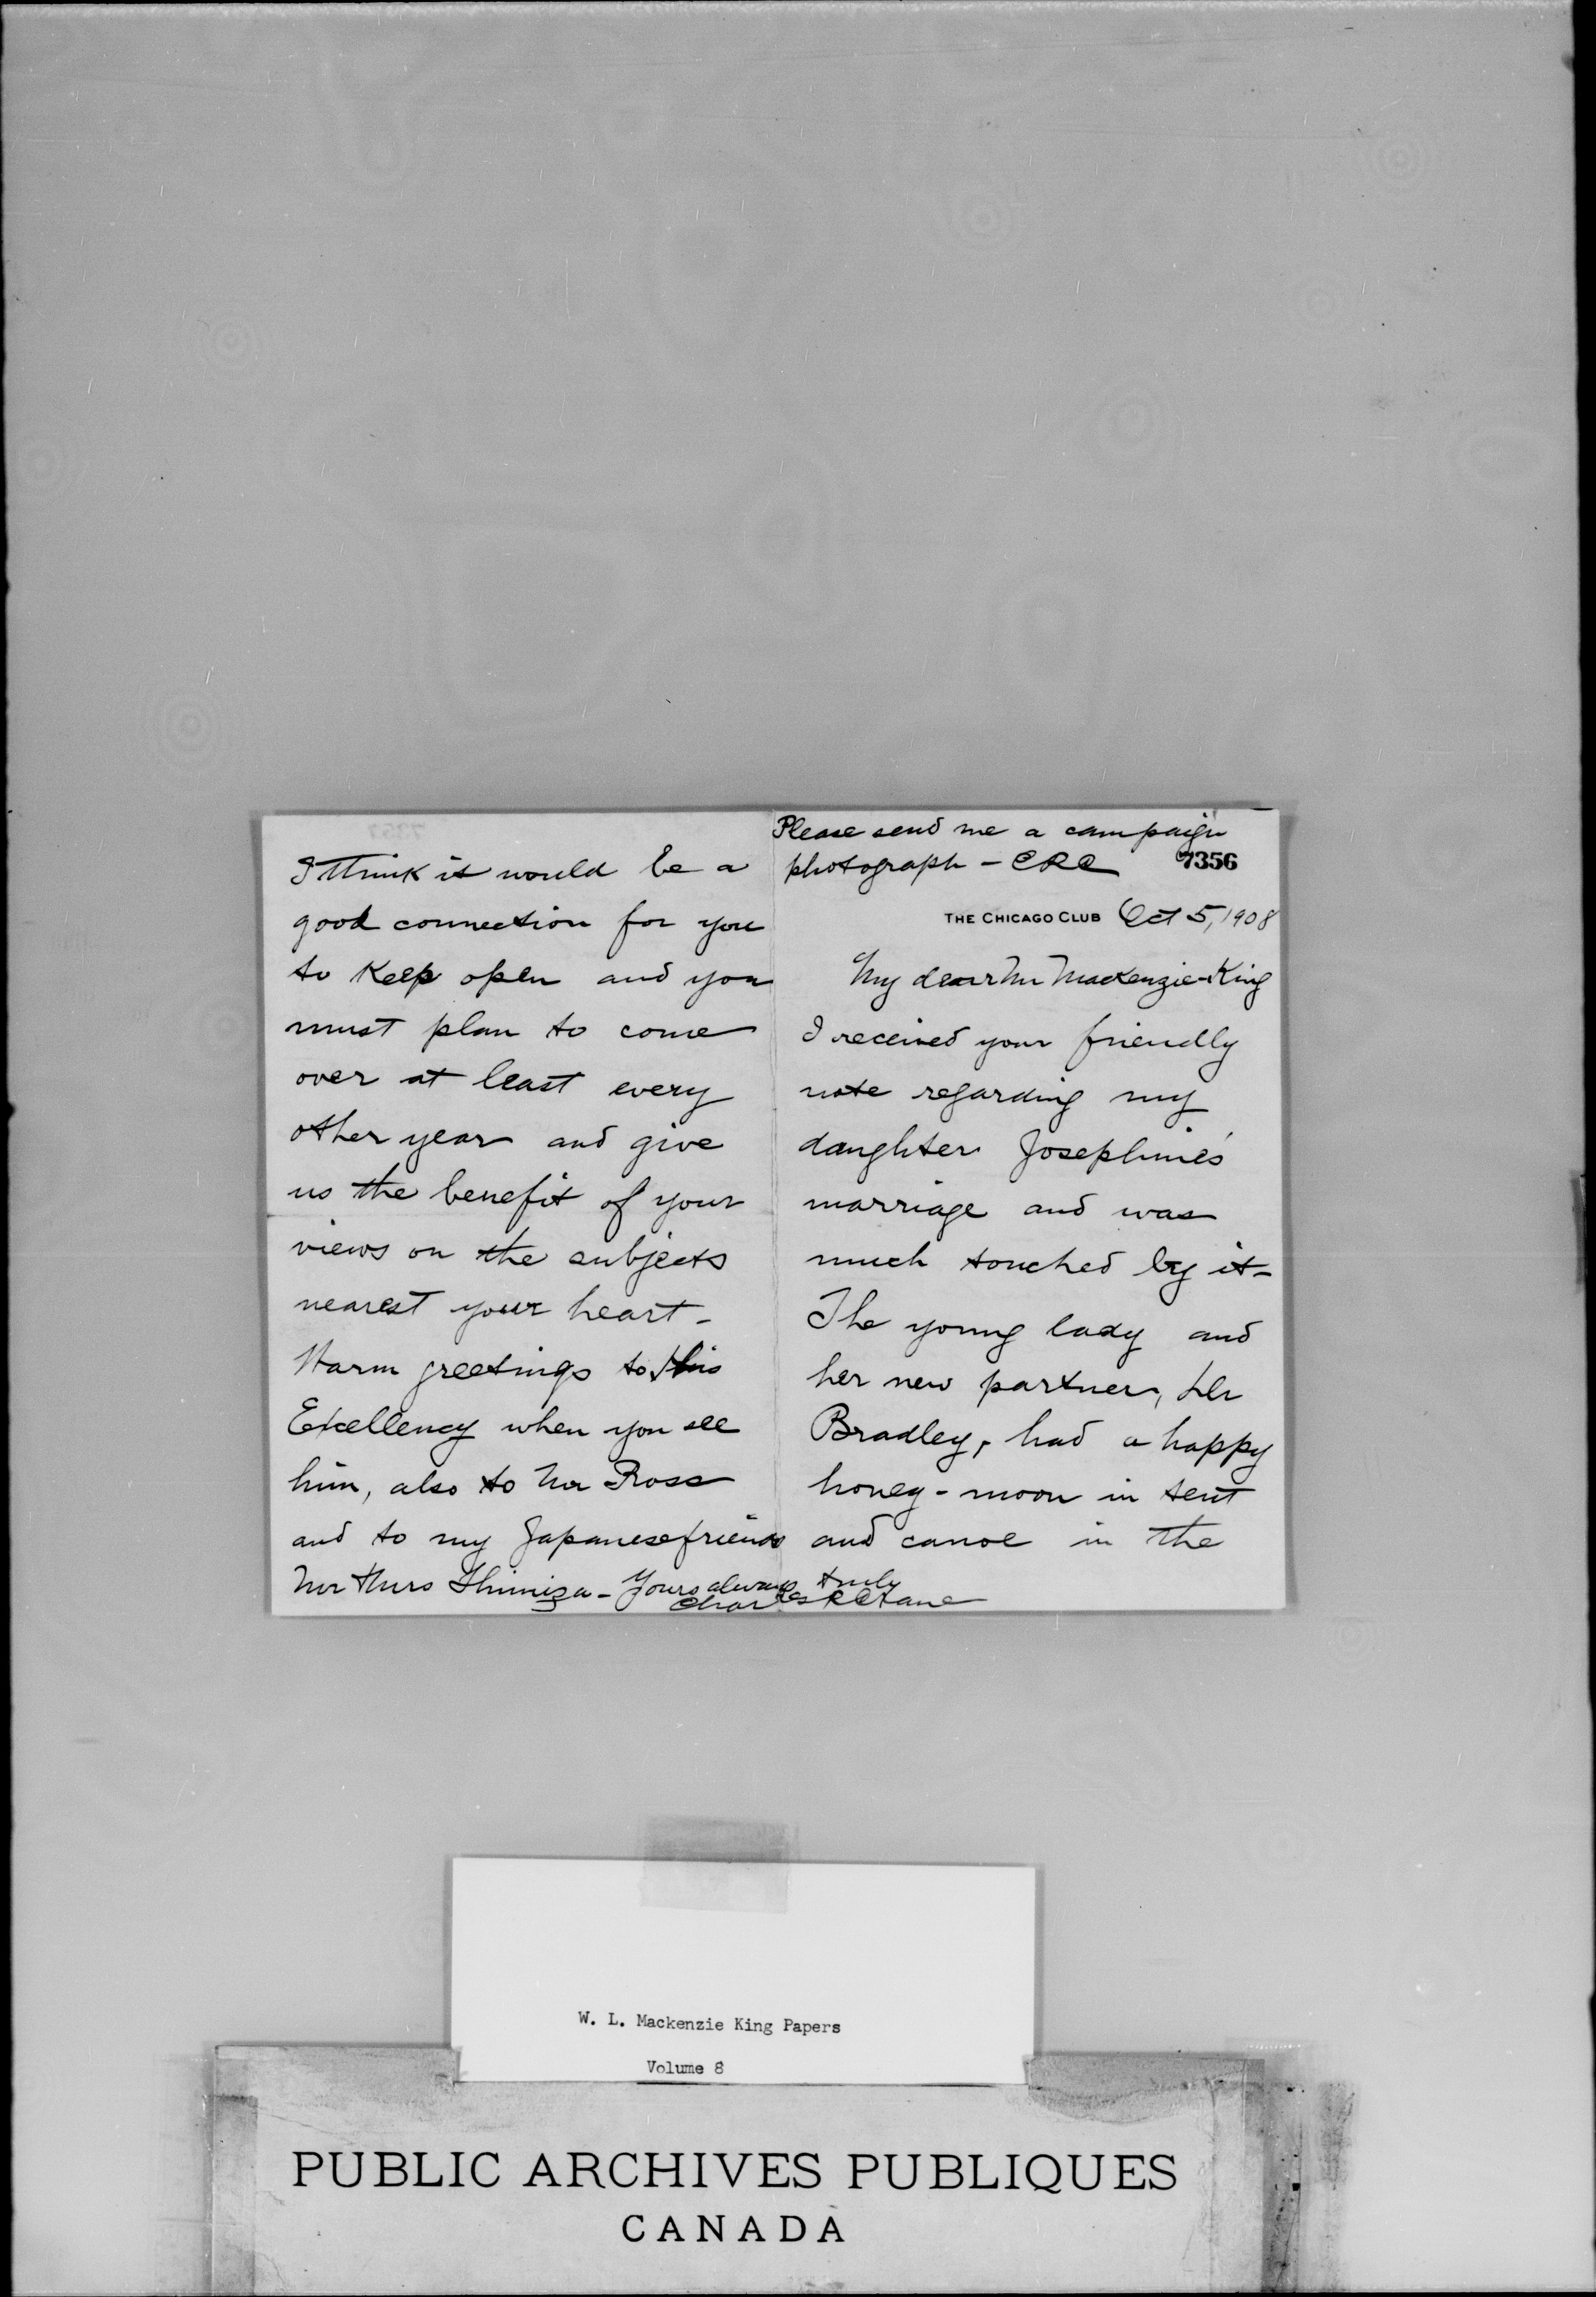 Please send me a campaign
photograph - CRC
7356
THE CHICAGO CLUB Oct 5, 1908
My dear Mr Mackenzie-King
I received your friendly
note regarding my
daughter Josephine's
marriage and was
much touched by it -
The young lady and
her new partner, Mr
Bradley, had a happy
honey-moon in tent
and canoe in the
I think it would be a
good connection for you
to keep open and you
must plan to come
over at least every
other year and give
us the benefit of your
views on the subjects
nearest your heart -
Warm greetings to His
Excellency when you see
him, also to Mr Ross
and to my Japanese friends
Mr & Mrs Shimizu - Yours always truly
Charles R Crane
W. L. Mackenzie King Papers
Volume 8
PUBLIC ARCHIVES PUBLIQUES
CANADA